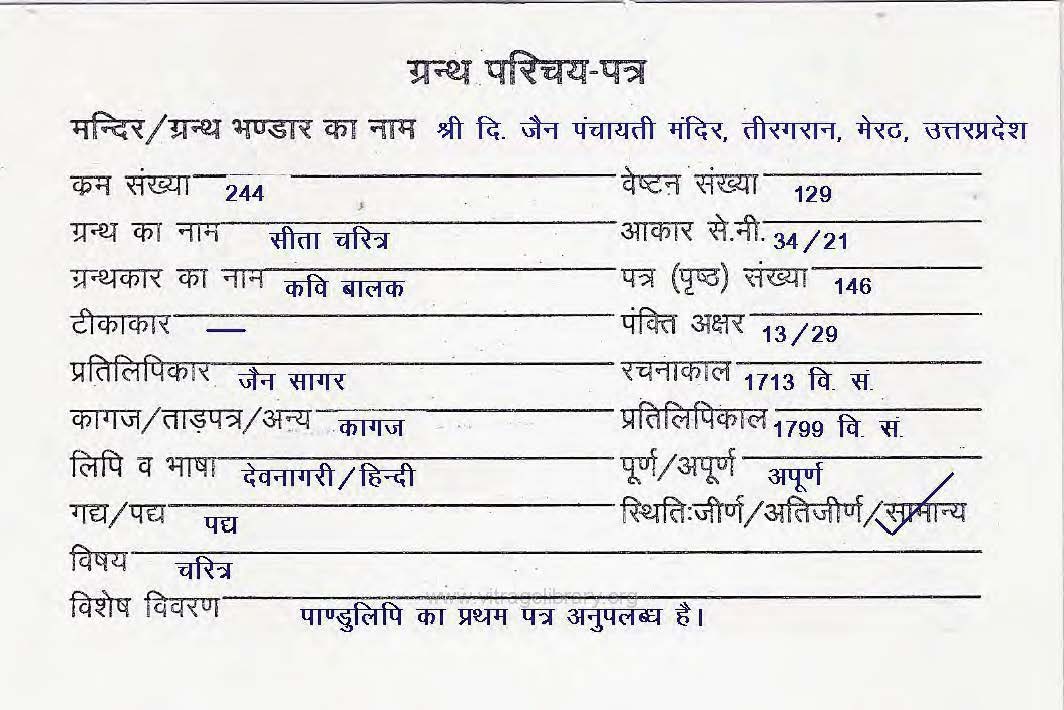 ग्रन्थ परिचय-पत्र
मन्दिर/ग्रन्थ भण्डार का नाम श्री दि. जैन पंचायती मंदिर, तीरगरान, मेरठ, उत्तरप्रदेश
क्रम संख्या 244 वेष्टन संख्या 129
ग्रन्थ का नाम सीता चरित्र आकार से.मी. 34/21
ग्रन्थकार का नाम कवि बालक पत्र (पृष्ठ) संख्या 146
टीकाकार — पंक्ति अक्षर 13/29
प्रतिलिपिकार जैन सागर रचनाकाल 1713 वि. सं.
कागज/ताड़पत्र/अन्य कागज प्रतिलिपिकाल 1799 वि. सं.
लिपि व भाषा देवनागरी/हिन्दी पूर्ण/अपूर्ण अपूर्ण
गद्य/पद्य पद्य स्थिति:जीर्ण/अतिजीर्ण/सामान्य
विषय चरित्र
विशेष विवरण पाण्डुलिपि का प्रथम पत्र अनुपलब्ध है।
www.vitragelibrary.org